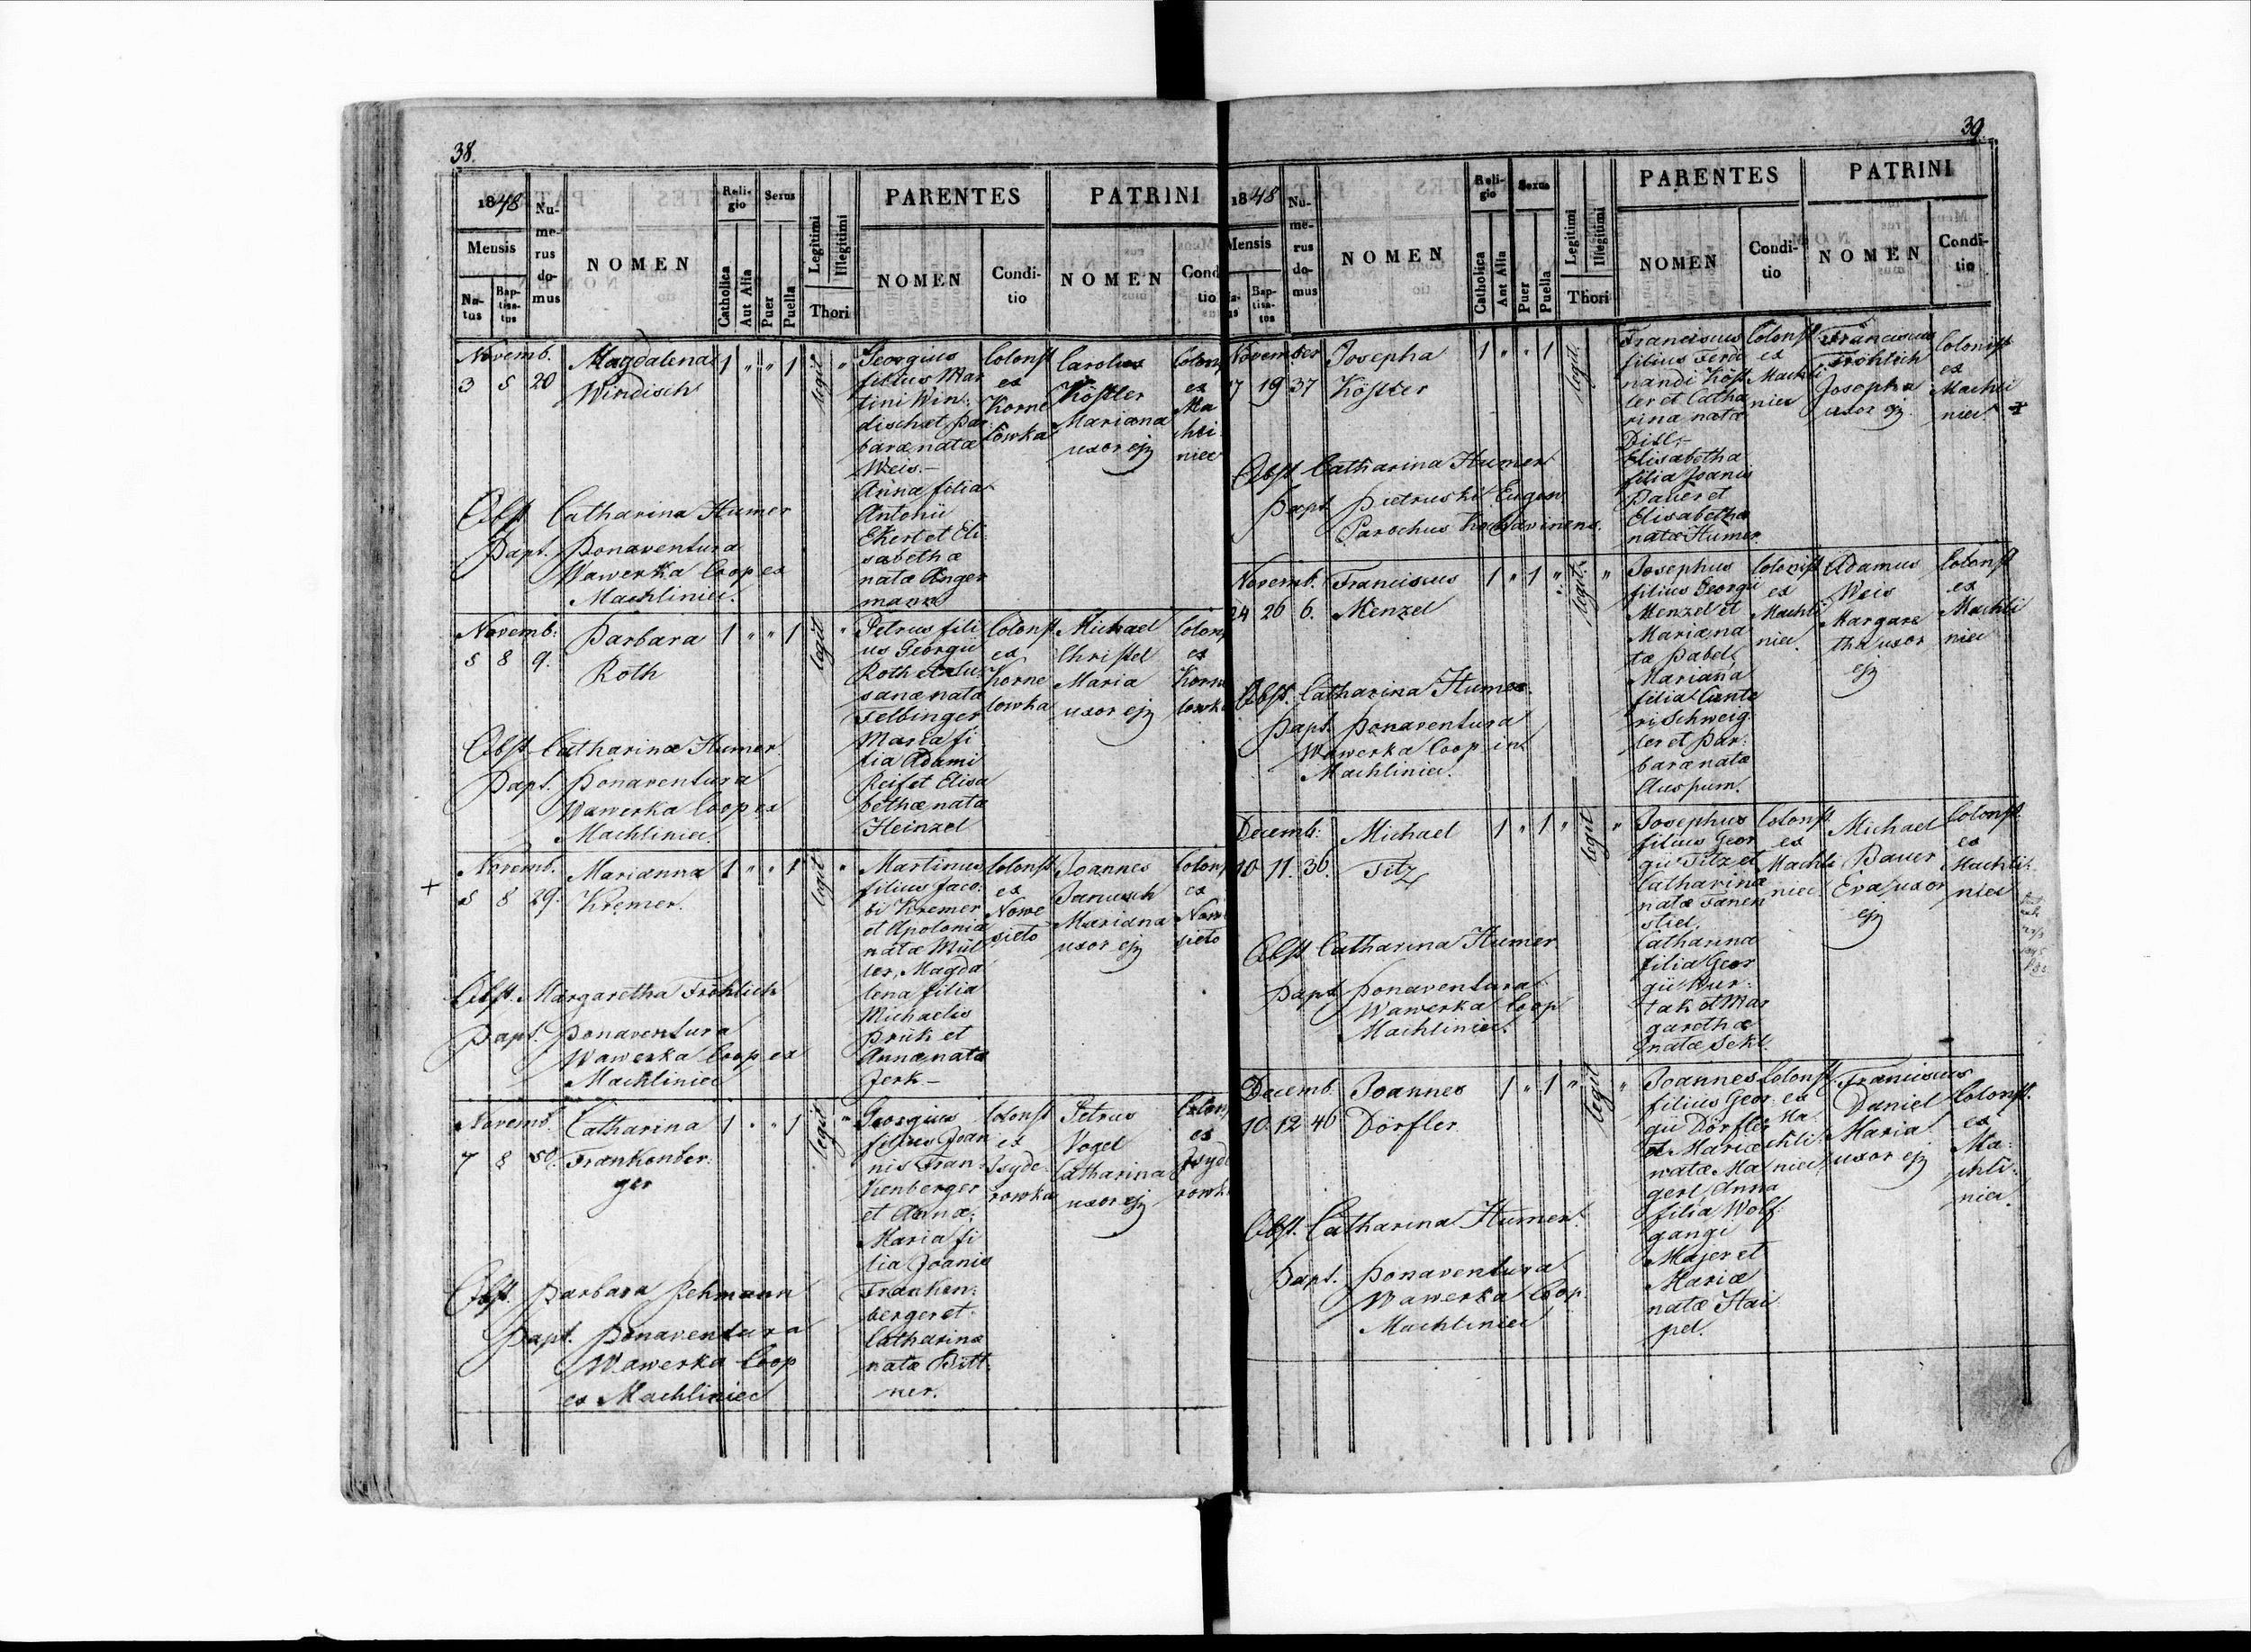 38.
1848
Mensis
Na-
tus
Bap-
tisa-
tus
Nu-
me-
rus
do-
mus
NOMEN
Reli-
gio
Catholica
Aut Alia
Sexus
Puer
Puella
Legitimi
Illegitimi
Thori
PARENTES
NOMEN
Condi-
tio
PATRINI
NOMEN
Cond
tio
Novemb.
3 5 20
Magdalena
Windisch
1 " " 1 legit "
Georgius
filius Mar
tini Win:
disch et Bar
baræ nata
Weis.-
Anna filia
Antonii
Ekert et Eli
sabethæ
natæ Anger
mann
Colonst
ex
Korne
lowka
Carolus
Köstler
Mariana
uxor ej
Colon
ex
Ma
chli
niec
Obst Catharina Humer
Bapt. Bonaventura
Wawerka Coop ex
Machliniec.
Novemb:
5 8 9.
Barbara
Roth
1 " " 1 legit "
Petrus fili
us Georgii
Roth et Su
sanæ nata
Felbinger
Maria fi
lia Adami
Reif et Elisa
bethæ nata
Heinzel
Colonst
ex
Korne
lowka
Michael
Christel
Maria
uxor ej
Colon
ex
Korne
lowk
Obst Catharina Humer
Bapt. Bonaventura
Wawerka Coop ex
Machliniec.
+
Novemb.
5 8 29.
Marianna
Kremer.
1 " " 1 legit "
Martinus
filius Jaco:
bi Kremer
et Apolonia
natæ Mül
ler, Magda
lena filia
Michaelis
Brük et
Annæ nata
Jerk-
Colonst
ex
Nowe
sieto
Joannes
Janusch
Mariana
uxor ej
Colon
ex
Now
sieto
Obst. Margaretha Fröhlich
Bapt. Bonaventura
Wawerka Coop ex
Machliniec
Novemb.
7 8 50.
Catharina
Frankenber:
ger
1 " " 1 legit "
Georgius
filius Joan
nis Fran:
kenberger
et Annæ;
Maria fi
lia Joanis
Franken:
berger et
Catharina
natæ Bitt
ner.
Colonst
ex
Isyde
rowka
Petrus
Vogel
Catharina
uxor ej
Colon
ex
Isyd
rowk
Obst. Barbara Rehmann
Bapt. Bonaventura
Wawerka Coop
ex Machliniec
39.
1848
Mensis
Bap-
tisa-
tus
Nu-
me-
rus
do-
mus
NOMEN
Reli-
gio
Catholica
Aut Alia
Sexus
Puer
Puella
Legitimi
Illegitimi
Thori
PARENTES
NOMEN
Condi-
tio
PATRINI
NOMEN
Condi-
tio
November
7 19 37
Josepha
Köstler
1 " " 1 legit
Franciscus
filius Ferdi
nandi Köst
ler et Catha
rina nata
Dill,-
Elisabetha
filia Joanis
Bauer et
Elisabetha
natæ Humer
Colonst
ex
Machli
niec
Franciscus
Fröhlich
Josepha
uxor ej
Colonist
ex
Machli
niec.
Obst Catharina Humer
Bapt Pietruski Eugen
Parochus Kochavinens.
Novemb.
24 26 6.
Franciscus
Menzel
1 " 1 " legit. "
Josephus
filius Georgii
Menzel et
Mariana
tæ Babel
Mariana
filia Cunte
ri Schweig
ler et Bar:
baræ nata
Auspum.
Colonist
ex
Machli
niec.
Adamus
Weis
Margare
tha uxor
ej
Colonst
ex
Machli
niec
Obst. Catharina Humer.
Bapt. Bonaventura
Wawerka Coop in
Machliniec.
Decemb:
10 11. 36.
Michael
Titz
1 " 1 " legit "
Josephus
filius Geor
gii Titz et
Catharina
natæ Fanen
stiel,
Catharina
filia Geor
gii Kur:
tak et Mar
garethæ
natæ Sekl.
Colonst
ex
Machli
niec
Michael
Bauer
Eva uxor
ej
Colonst.
ex
Machli
niec
Obst Catharina Humer
Bapt Bonaventura
Wawerka Coop
Machliniec.
Decemb.
10. 12 46
Joannes
Dörfler
1 " 1 " legit "
Joannes
filius Geor
gii Dörfler
et Mariæ
natæ Ma
gerl, Anna
filia Wolf
gangi
Majer et
Mariæ
natæ Hai
pel.
Colonst.
ex
Ma
chli
niec
Franciscus
Daniel
Maria
uxor ej
Colonst.
ex
Ma:
chli:
niec.
Obst. Catharina Humer.
Bapt. Bonaventura
Wawerka Coop.
Machliniec